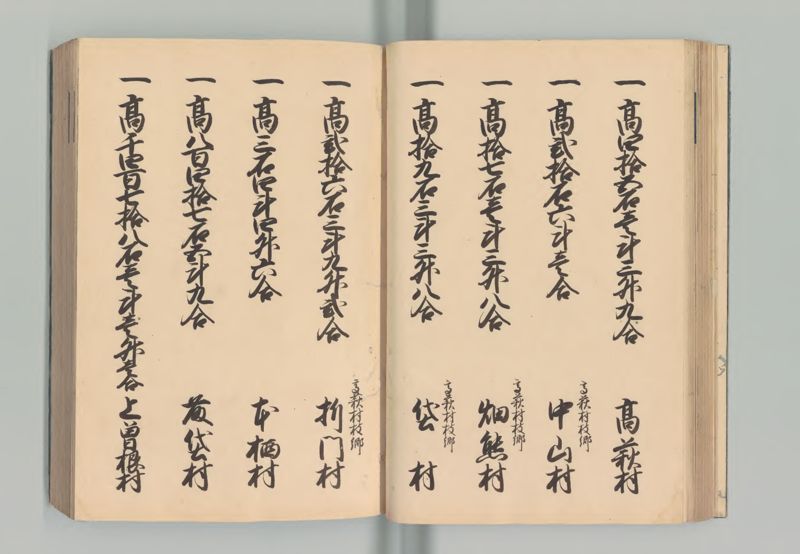 一高四拾五石壱斗三升九合 高萩村
一高弐拾石六斗壱合 高萩村枝郷 中山村
一高拾七石壱斗三升八合 高萩村枝郷 畑熊村
一高拾九石三斗三升八合 高萩村枝郷 岱村
一高弐拾六石三斗九升弐合 高萩村枝郷 折門村
一高三石四斗四升六合 本栖村
一高八百四拾七石五斗九合 黄岱村
一高千四百七拾八石壱斗壱升壱合 上曽根村